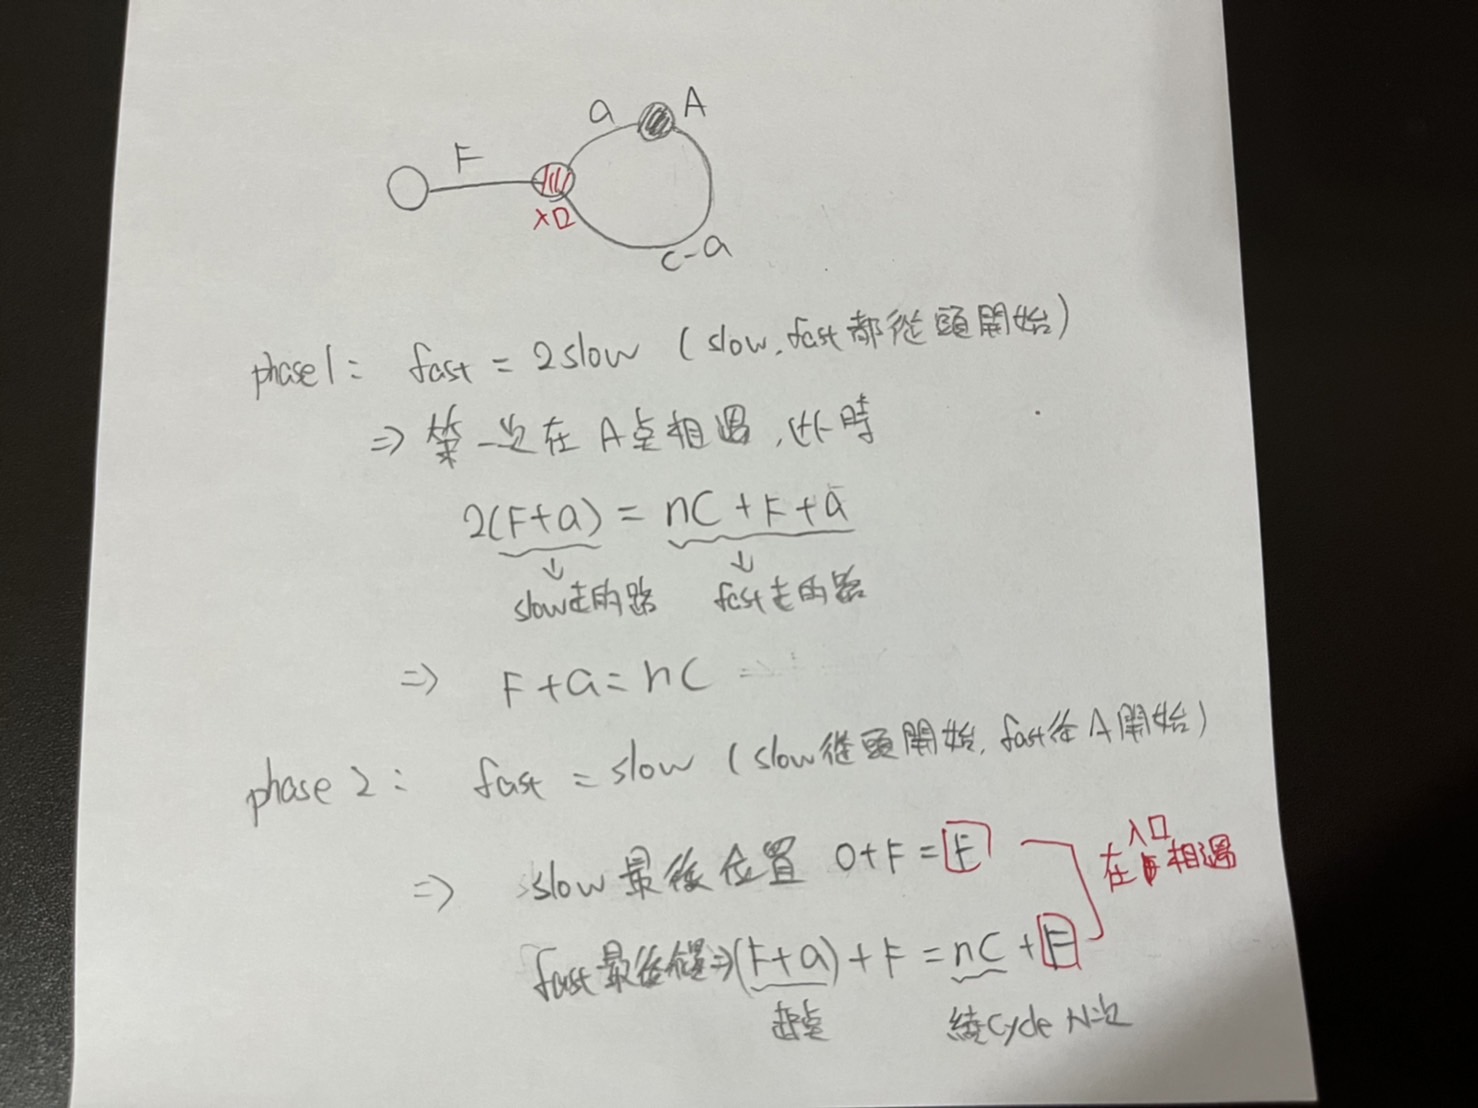 a A
F
入口
c-a
phase1: fast = 2slow (slow, fast都從頭開始)
⇒ 第一次在A点相遇, 此時
2(F+a) = nC + F + a
slow走的路 fast走的路
⇒ F+a = nC
phase 2: fast = slow (slow從頭開始, fast從A開始)
⇒ slow最後位置 0+F = F
入口
在 相遇
fast最後位置⇒(F+a) + F = nC + F
起点 繞Cycle N次